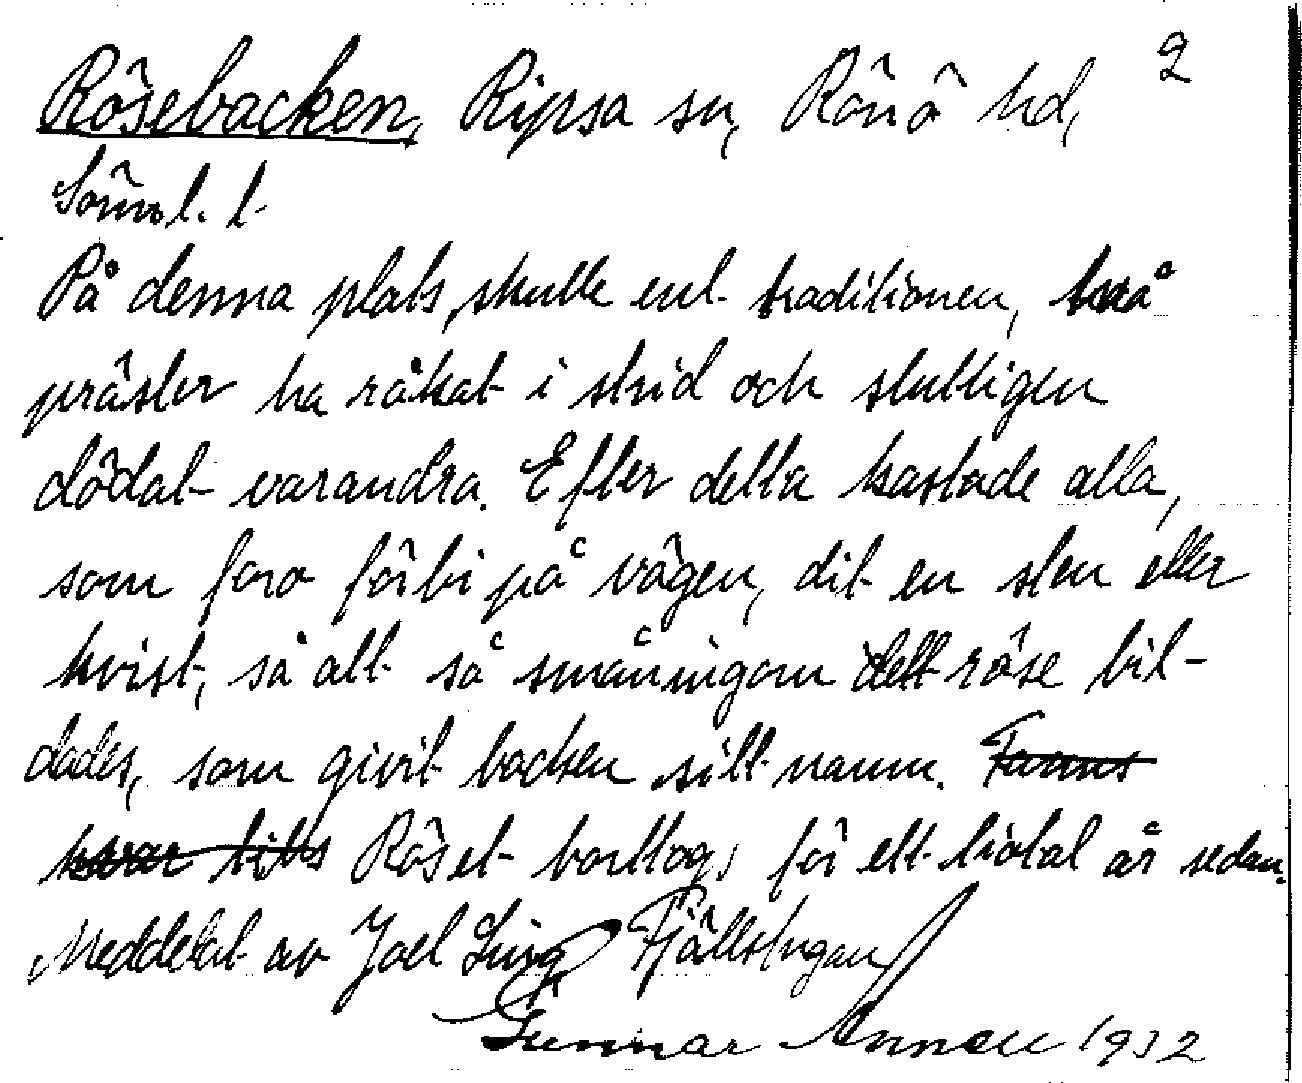 Rösebacken, Ripsa sn, Rönö hd, 2
Sörml. l.
På denna plats, skulle enl. traditionen, två
präster ha råkat i strid och slutligen
dödat varandra. Efter detta kastade alla,
som foro förbi på vägen, dit en sten eller
kvist, så att så småningom det röse bil-
dades, som givit backen sitt namn. Fanns
kvar tills Röset borttogs för ett tiotal år sedan.
Meddelat av Joel Ling Fjällstugan
Gunnar 1932